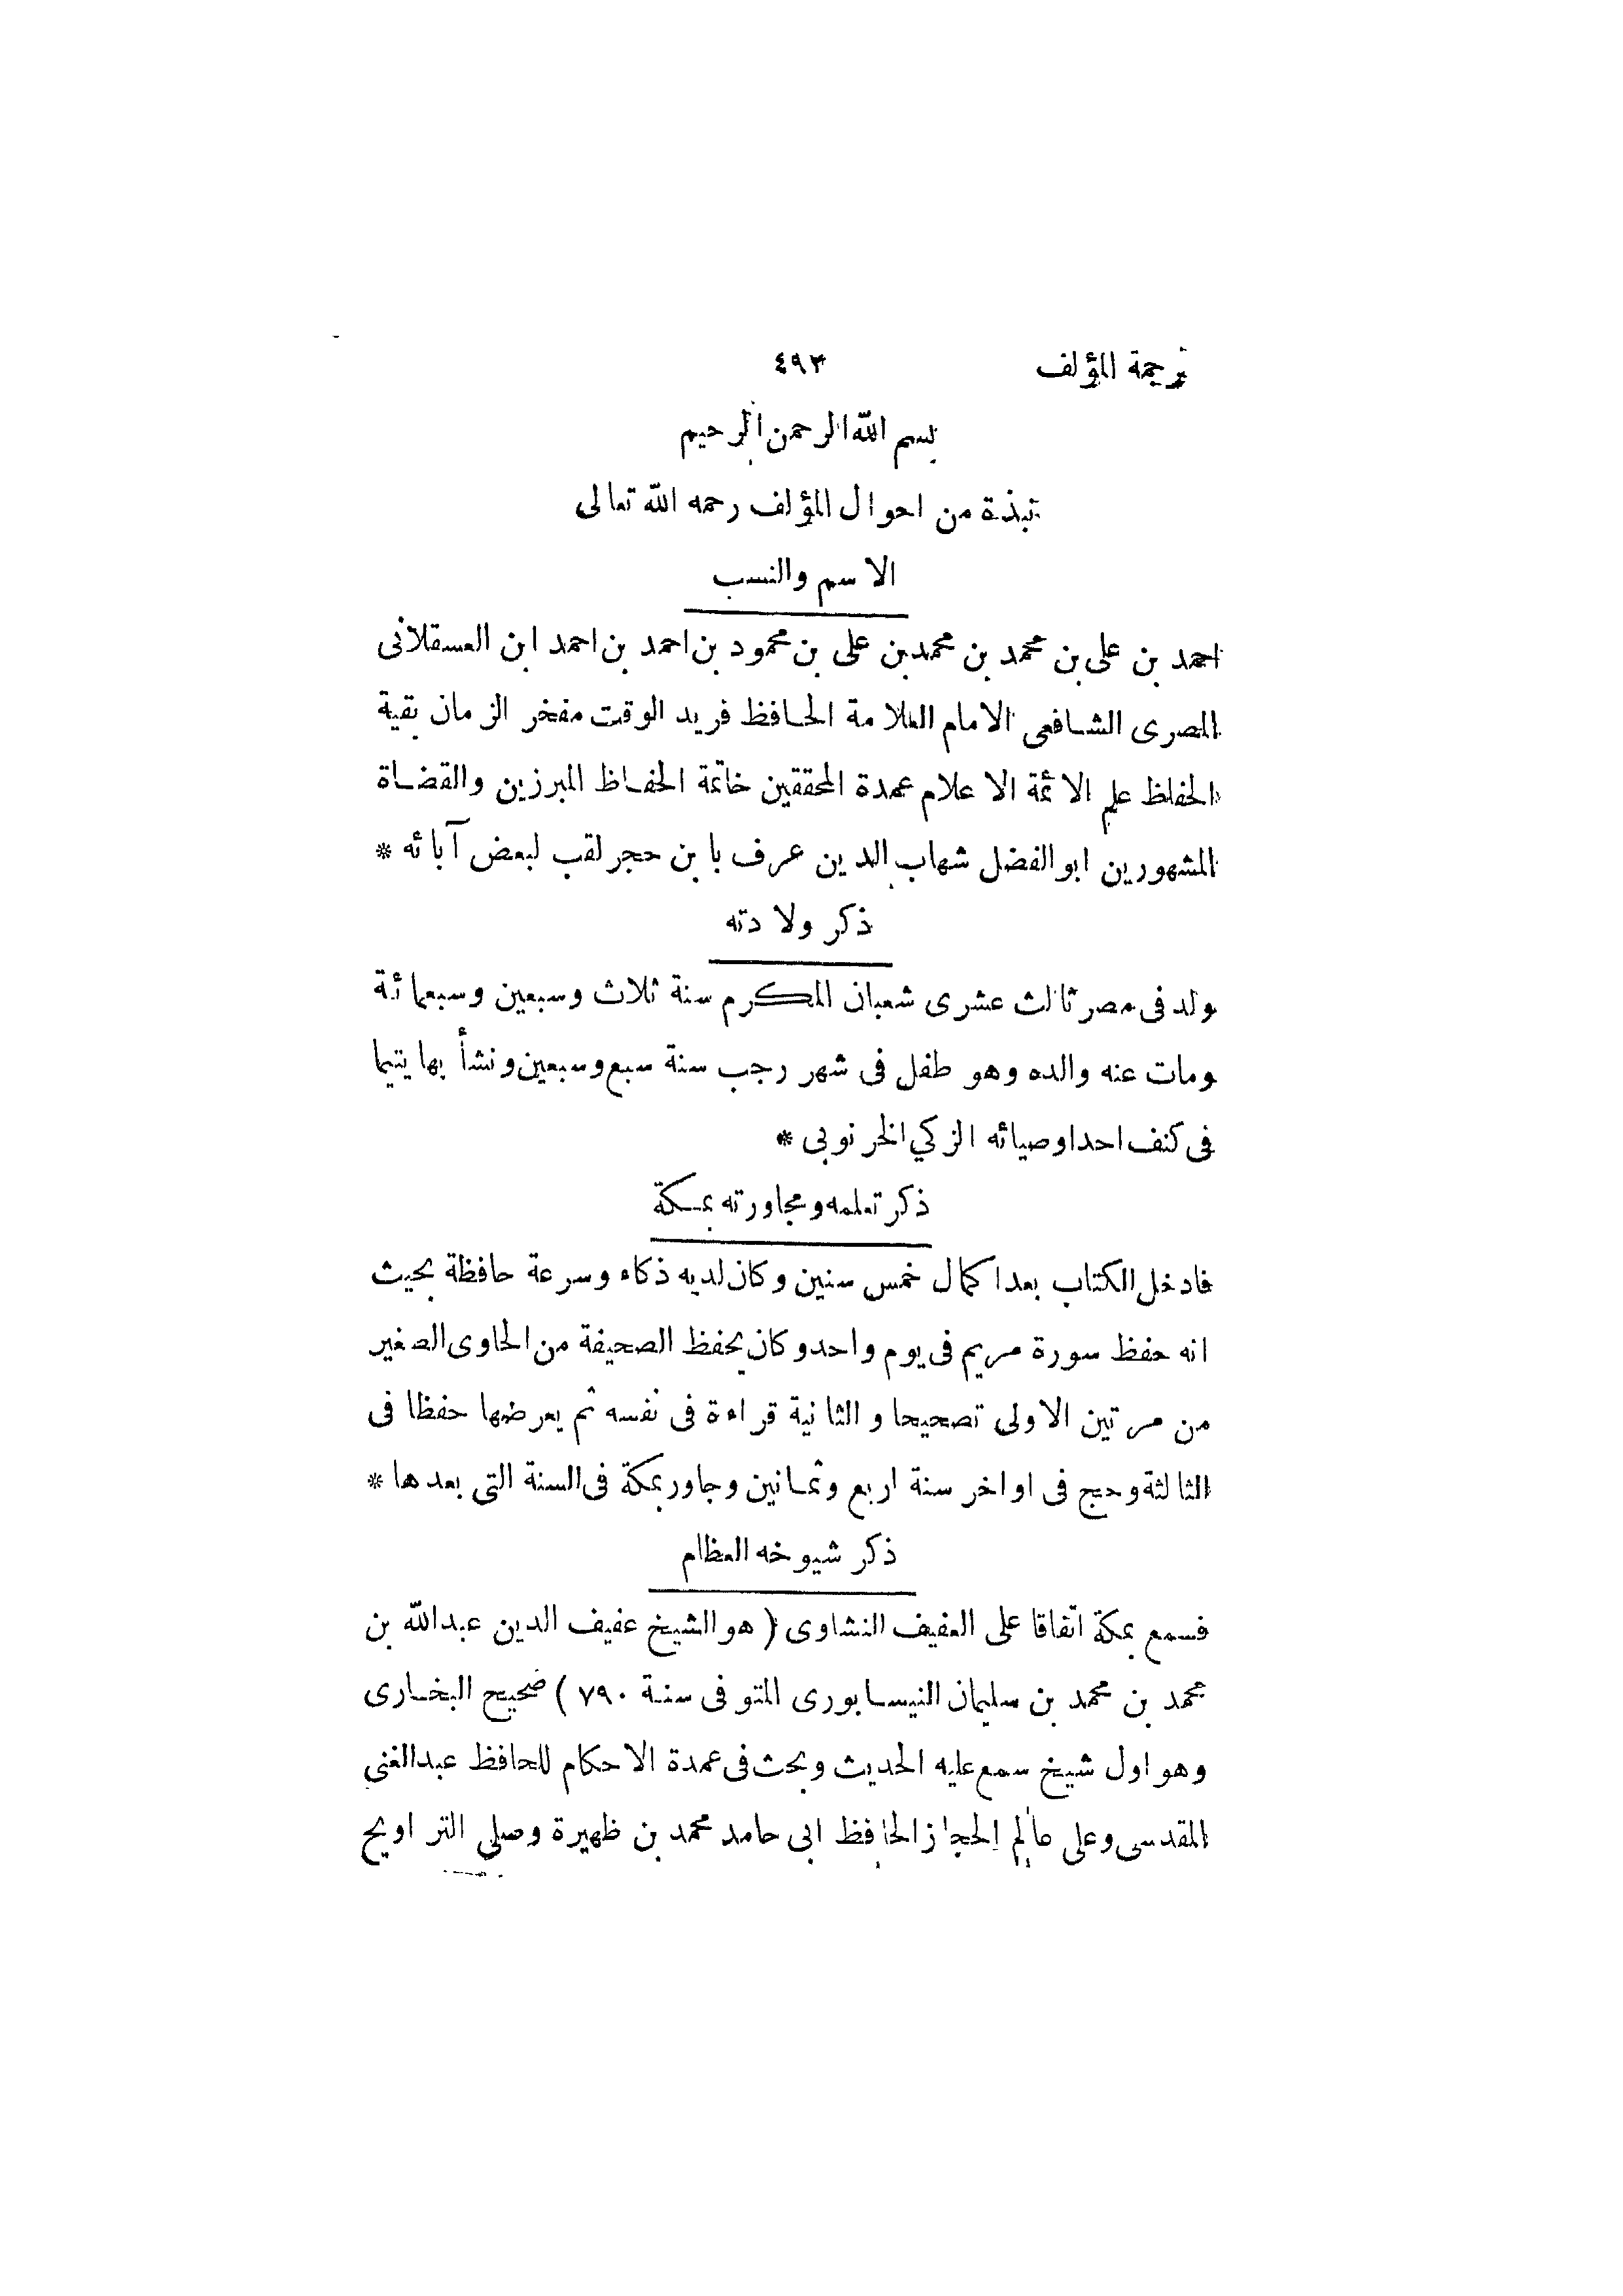 ترجمة المؤلف ٤٩٣
بسم الله الرحمن الرحيم
نبذة من احوال المؤلف رحمه الله تعالى
الاسم والنسب
احمد بن على بن محمد بن محمد بن على بن محمود بن احمد بن احمد ابن العسقلانى
المصرى الشافعى الامام العلامة الحافظ فريد الوقت مفخر الزمان بقية
الحفاظ علم الائمة الاعلام عمدة المحققين خاتمة الحفاظ المبرزين والقضاة
المشهورين ابو الفضل شهاب الدين عرف بابن حجر لقب لبعض آبائه *
ذكر ولادته
ولد فى مصر ثالث عشرى شعبان المكرم سنة ثلاث وسبعين وسبعمائة
ومات عنه والده وهو طفل فى شهر رجب سنة سبع وسبعين ونشأ بها يتيما
فى كنف احد اوصيائه الزكي الخرنوبى *
ذكر تعلمه ومجاورته بمكة
فادخل الكتاب بعد اكمال خمس سنين وكان لديه ذكاء وسرعة حافظة بحيث
انه حفظ سورة مريم فى يوم واحد وكان يحفظ الصحيفة من الحاوى الصغير
من مرتين الاولى تصحيحا والثانية قراءة فى نفسه ثم يعرضها حفظا فى
الثالثة وحج فى اواخر سنة اربع وثمانين وجاور بمكة فى السنة التى بعدها *
ذكر شيوخه العظام
فسمع بمكة اتفاقا على العفيف النشاوى ( هو الشيخ عفيف الدين عبد الله بن
محمد بن محمد بن سليمان النيسابورى المتوفى سنة ٧٩٠ ) صحيح البخارى
وهو اول شيخ سمع عليه الحديث وبحث فى عمدة الاحكام للحافظ عبد الغنى
المقدسى وعلى عالم الحجاز الحافظ ابى حامد محمد بن ظهيرة وصلى التراويح